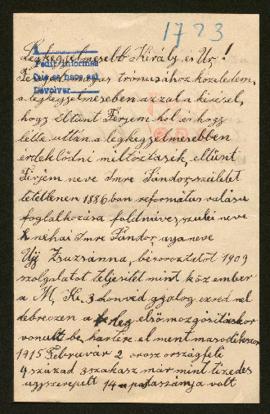 1723
Legkegyelmesebb Király és Úr!
A
Pedir informes
Dia se hace sal
Devolver
Felséges trónusához közeledem,
a legkegyelmesebben azzal a kéréssel,
hogy Eltünt Férjem hol és hogy
léte után a legkegyelmesebben
érdeklődni méltóztassék, eltünt
Férjem neve Imre Sándor, született
tetétlenen 1886ban református vallásu
foglalkozása földmüves, szülei neve
néhai Imre Sándor anya neve
Ujj Zsuzsánna, besoroztatot 1909
szolgálatot teljesitet mint közember
a M, Kir, 3 honvéd gyalog ezred nél
debreczen a első mozgósitáskor
vonult be, hartérre el ment másodikszor
1915 Február 2 orosz országfelé
4 század 3 szakasz már mint tizedes
ugyszerepelt 14 a pataszáma volt